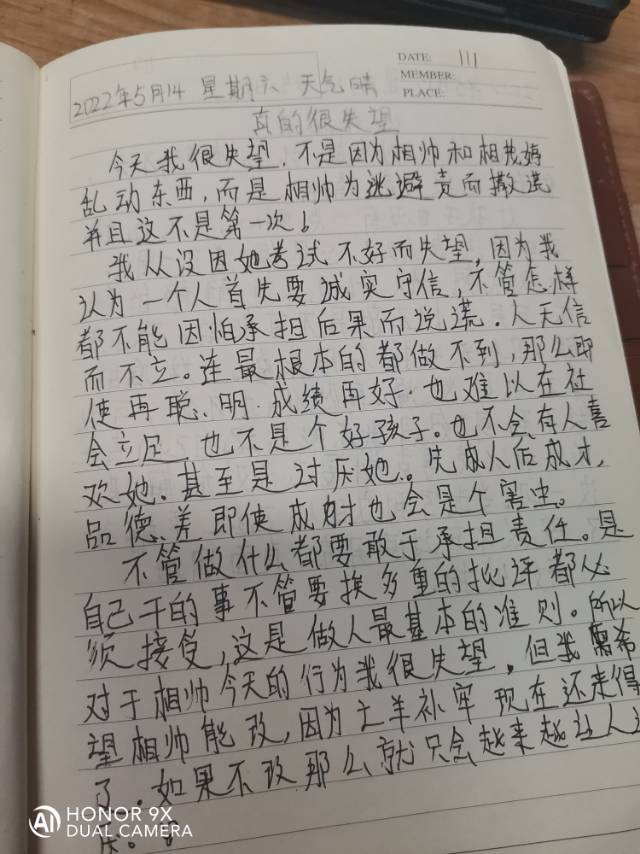 DATE: 111
MEMBER:
PLACE:
2022年5月14 星期六 天气晴
真的很失望
今天我很失望.不是因为相帅和相
乱动东西,而是相帅为逃避责而撒谎
并且这不是第一次!
我从没因她考试不好而失望,因为我
认为一个人首先要诚实守信,不管怎样
都不能因怕承担后果而说谎.人无信
而不立。连最根本的都做不到,那么即
使再聪、明.成绩再好.也难以在社
会立足.也不是个好孩子。也不会有人喜
欢她.甚至是讨厌她.。先成人后成才,
品德、差即使成才也会是个害虫。
不管做什么都要敢于承担责任。是
自己干的事不管要挨多重的批评都必
须接受,这是做人最基本的准则。所以
对于相帅今天的行为我很失望,但我希
望相帅能改,因为亡羊补牢现在还来得
了.如果不改那么就只会越来越让人
厌。
HONOR 9X
AI DUAL CAMERA